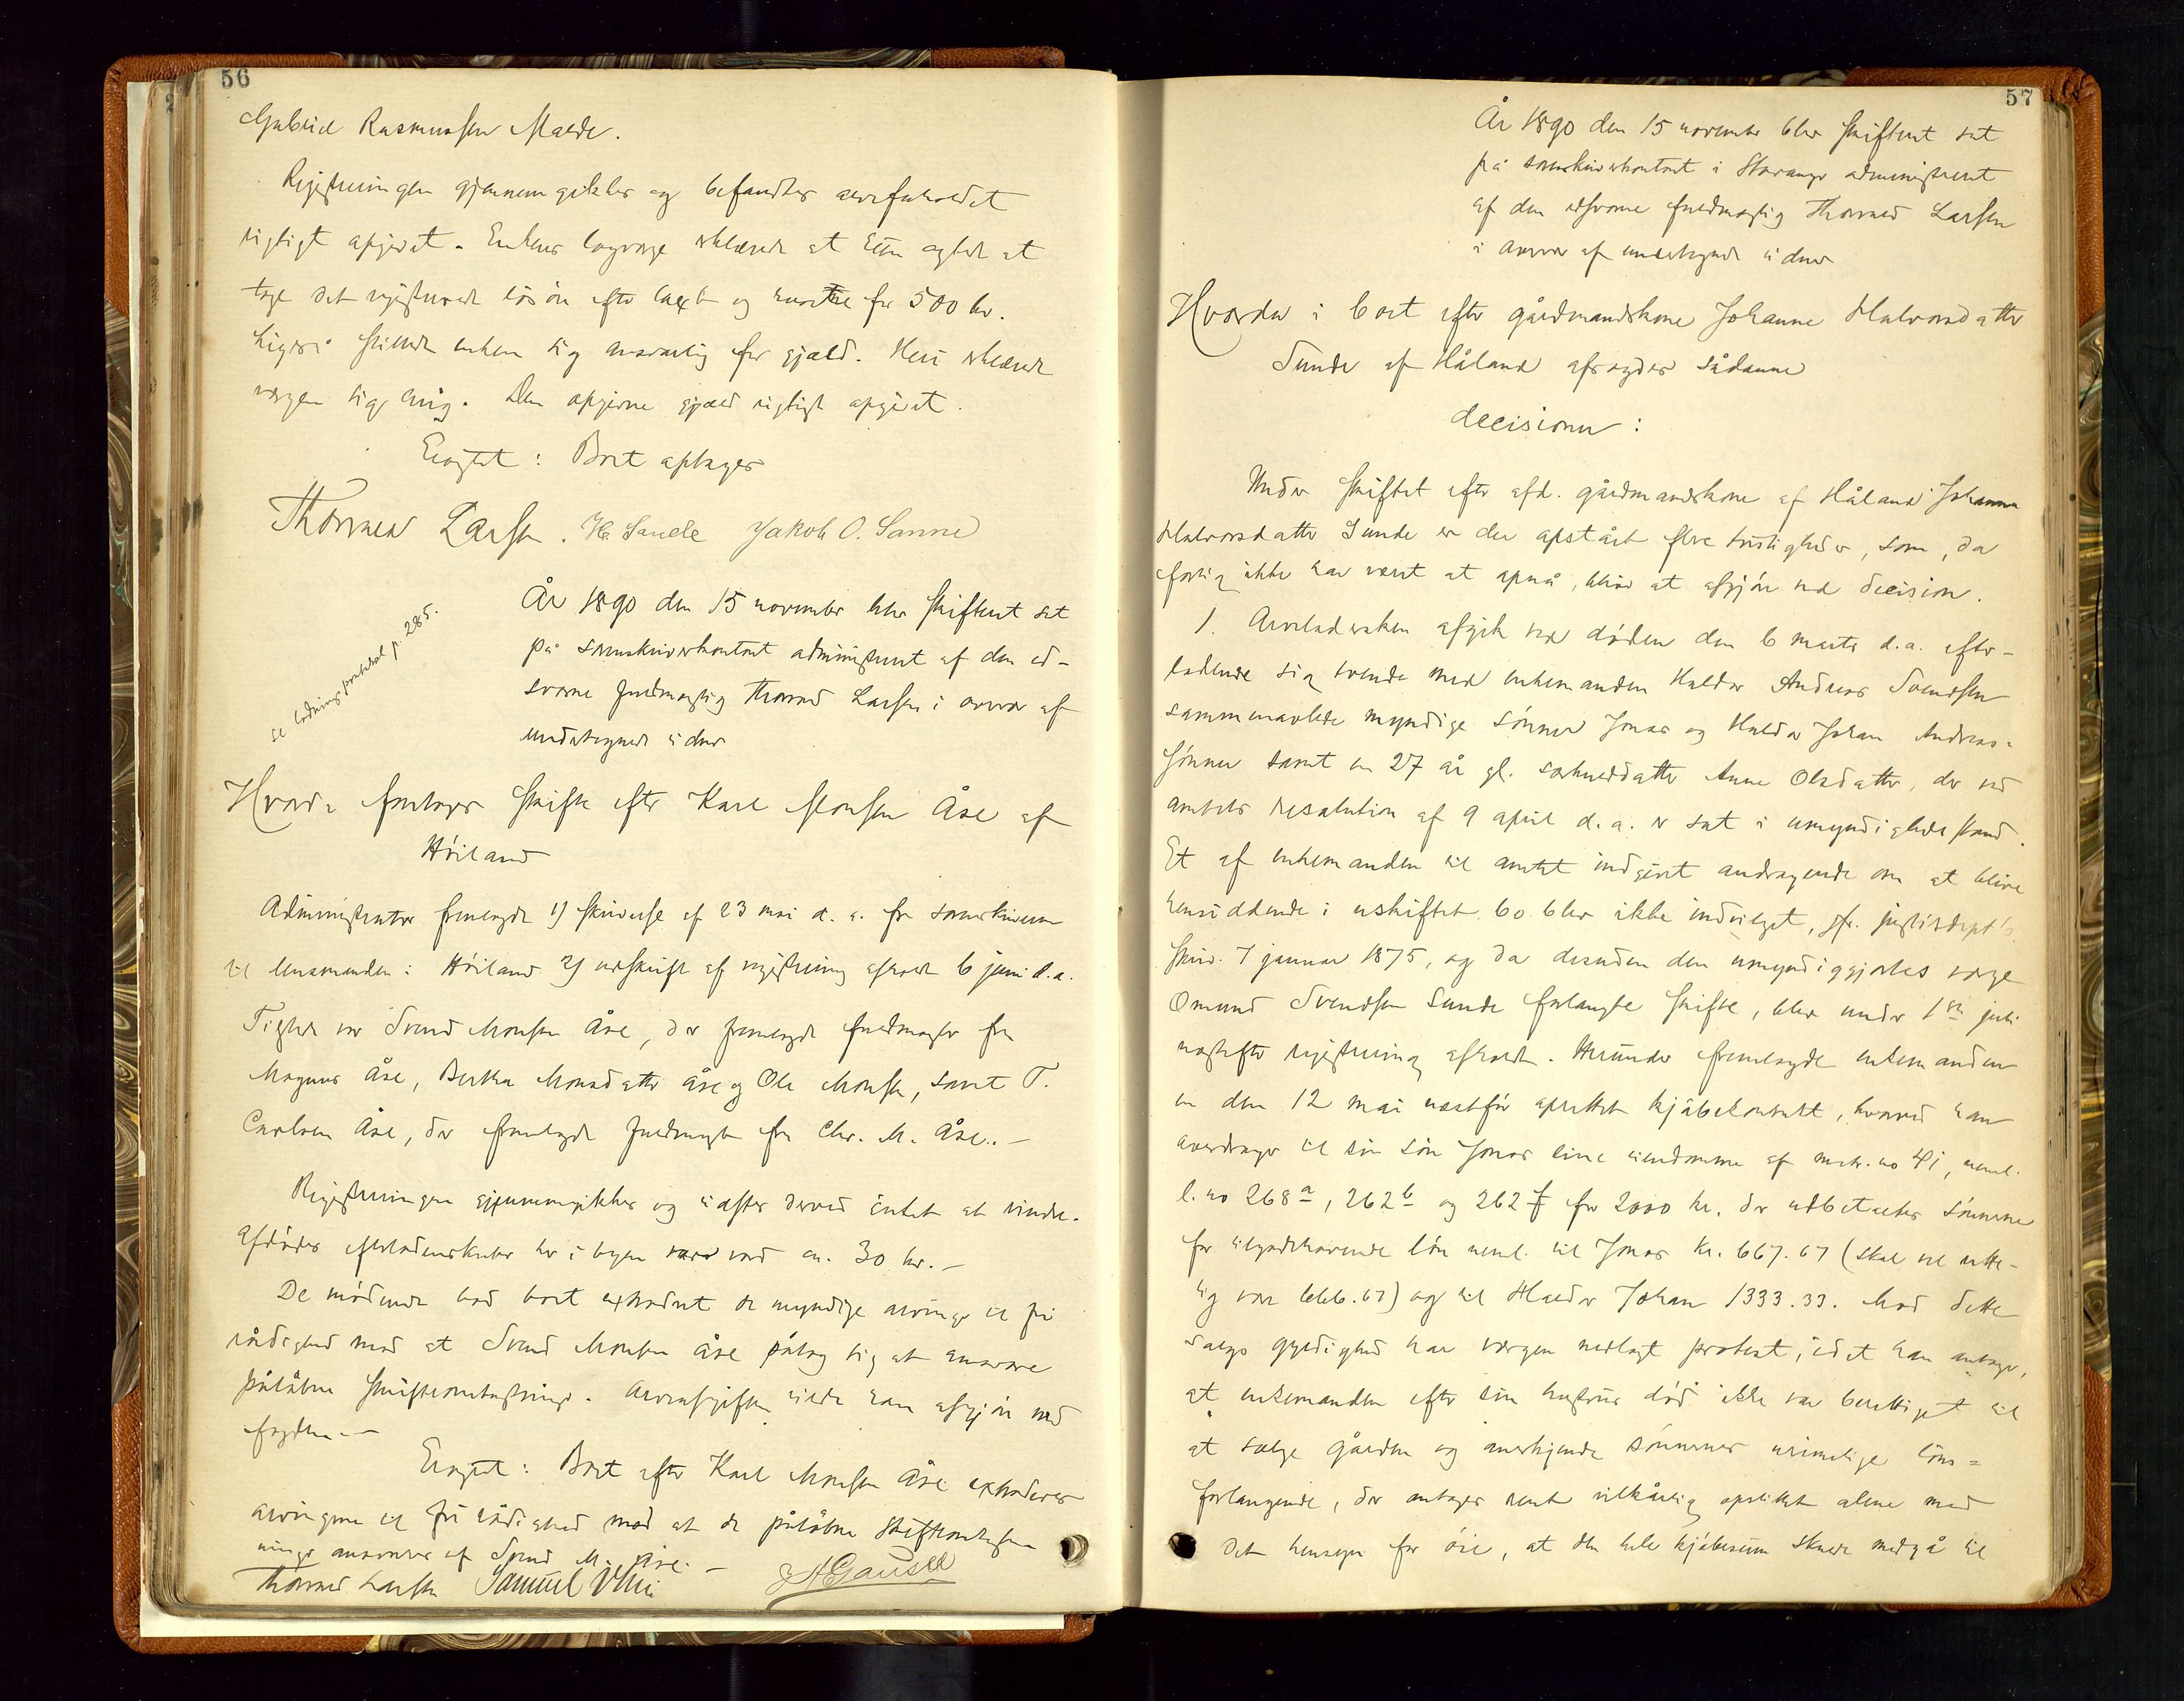 56
Gabriel Rasmussen Malde.
Registreringen gjennemgikkes og befandtes arveforholdet
rigtigt opgivet. Enkens lagværge erklærede at hun agtede at
tage det registrerede løsøre efter taxt og hvortil for 500 kr.
Ligeså stillede enken sig ansvarlig for gjæld. Heri erklærede
værgen sig enig. Den opgivne gjæld rigtigt opgivet.
Eragtet: Boet optages
Thorvald Larsen. H Sande Jakob O. Sanne
se lodningsprotokol p. 285.
År 1890 den 15 november blev skifteret sat
på sorenskriverkontoret administreret af den ed-
svorne fuldmægtig Thorvald Larsen i overvær af
undertegnede vidner
Hvorda foretoges skifte efter Karl Monsen Åse af
Høiland
Administrator fremlagde 1) skrivelse af 23 mai d. a. fra sorenskriveren
til lensmanden i Høiland 2) udskrift af registrering afholdt 6 juni d.a.
Tilstede var Svend Monsen Åse, der fremlagde fuldmagter fra
Magnus Åse, Berta Monsdatter Åse og Ole Monsen, samt T.
Carlsen Åse, der fremlagde fuldmagt fra Chr. M. Åse. —
Registreringen gjennemgikkes og vidstes derved intet at erindre.
Afdødes efterladenskaber her i byen var værd ca. 30 kr. —
De mødende bad boet extraderet de myndige arvinger til fri
rådighed mod at Svend Monsen Åse påtog sig at ansvare
påløbne skifteomkostninger. Arveafgiften vilde han afgjøre ved
Eragtet: Boet efter Karl Monsen Åse extraderes
arvingerne til fri rådighed mod at de påløbne skifteomkost-
ninger ansvares af Svend M. Åse. —
Thorvald Larsen Samuel JAGausel
57
År 1890 den 15 november blev skifteret sat
på sorenskriverkontoret i Stavanger administreret
af den edsvorne fuldmægtig Thorvald Larsen
i overvær af undertegnede vidner
Hvorda i boet efter gårdmandskone Johanne Halvorsdatter
Sunde af Håland afsagdes sådanne
decisioner:
Under skiftet efter afd. gårdmandskone af Håland Johanne
Halvorsdatter Sunde er der opstået flere tvistigheder, som, da
forlig ikke har været at opnå, bliver at afgjøre ved decision.
1. Arveladersken afgik ved døden den 6 marts d.a. efter-
ladende sig tvende med enkemanden Haldor Andreas Svendsen
sammenavlede myndige sønner Jonas og Haldor Johan Andreas-
sønner samt en 27 år gl. særkuldatter Anne Olsdatter, der ved
amtets resolution af 9 april d.a. er sat i umyndighedsstand.
Et af enkemanden til amtet indgivet andragende om at blive
hensiddende i uskiftet bo blev ikke indvilget, jfr. justisdept's
skriv. 7 januar 1875, og da desuden den umyndiggjortes værge
Omund Svendsen Sunde forlangte skifte, blev under 1ste juli
næstefter registrering afholdt. Herunder fremlagde enkemanden
en den 12 mai næstfør oprettet kjøbekontrakt, hvorved han
overdrager til sin søn Jonas sine eiendomme af matr. no 41, neml.
l. no 268 a, 262 b og 262 f for 2000 kr, der udbetaltes sønnerne
for tilgodehavende løn neml. til Jonas kr. 667.67 (skal vel rette-
lig være 666.67) og til Haldor Johan 1333.33. Mod dette
salgs gyldighed har værgen nedlagt protest, idet han antager,
at enkemanden efter sin hustrus død ikke var berettiget til
at sælge gården og anerkjende sønnernes urimelige løns-
forlangende, der antages rent vilkårlig opstillet alene med
det hensyn for øie, at den hele kjøbesum skulde medgå til